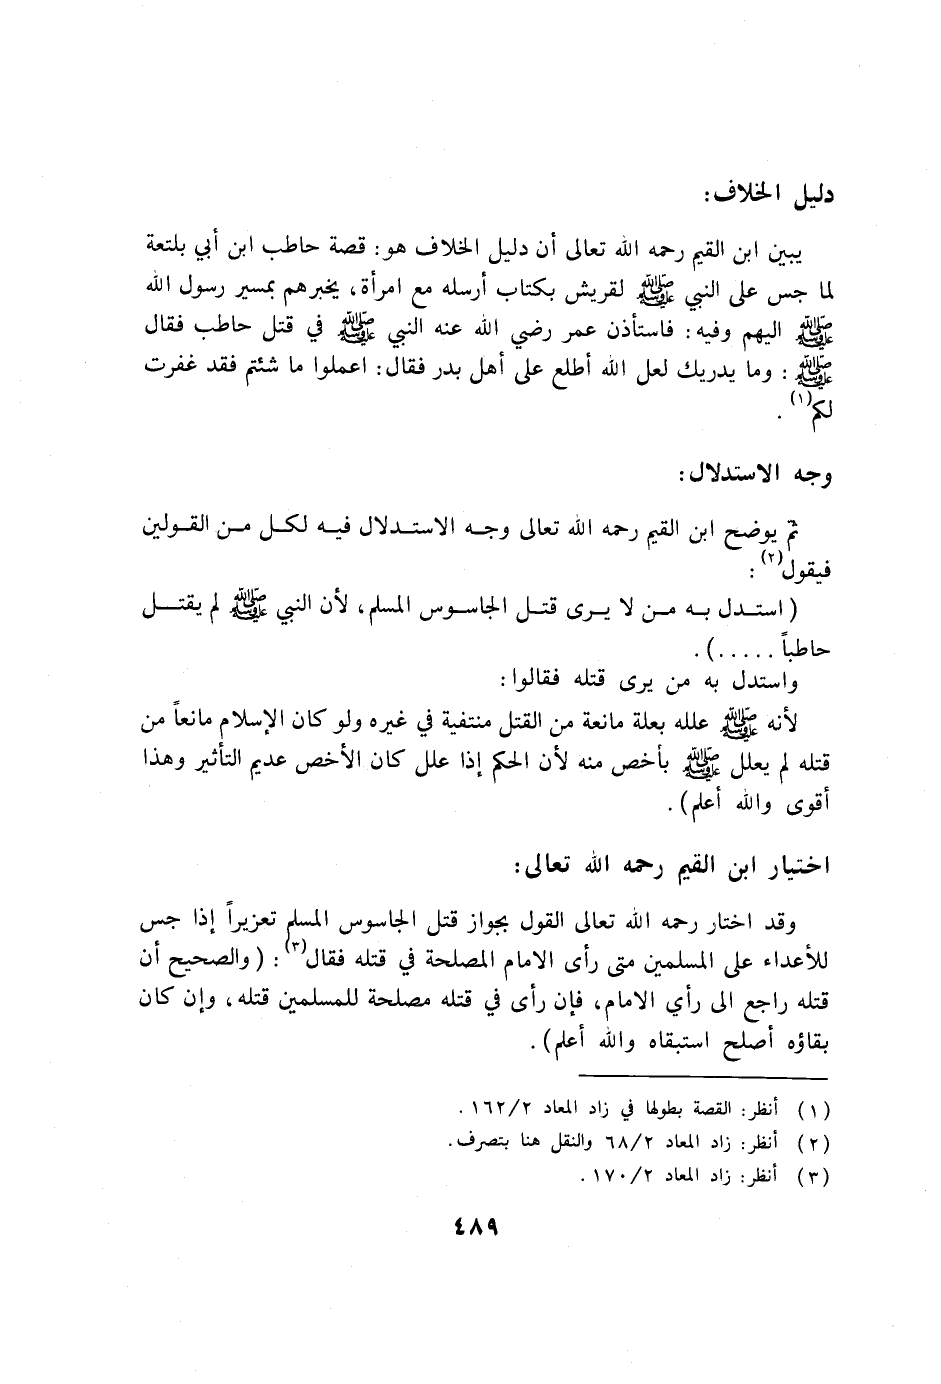 دليل الخلاف:
يبين ابن القيم رحمه الله تعالى أن دليل الخلاف هو: قصة حاطب ابن أبي بلتعة
لما جس على النبي ﷺ لقريش بكتاب أرسله مع امرأة، يخبرهم بمسير رسول الله
ﷺ اليهم وفيه: فاستأذن عمر رضي الله عنه النبي ﷺ في قتل حاطب فقال
ﷺ: وما يدريك لعل الله أطلع على أهل بدر فقال: اعملوا ما شئتم فقد غفرت
لكم(١).
وجه الاستدلال:
ثم يوضح ابن القيم رحمه الله تعالى وجه الاستدلال فيه لكل من القولين
فيقول(٢):
(استدل به من لا يرى قتل الجاسوس المسلم، لأن النبي ﷺ لم يقتل
حاطباً .....).
واستدل به من يرى قتله فقالوا:
لأنه ﷺ علله بعلة مانعة من القتل منتفية في غيره ولو كان الإسلام مانعاً من
قتله لم يعلل ﷺ بأخص منه لأن الحكم إذا علل كان الأخص عديم التأثير وهذا
أقوى والله أعلم).
اختيار ابن القيم رحمه الله تعالى:
وقد اختار رحمه الله تعالى القول بجواز قتل الجاسوس المسلم تعزيراً إذا جس
للأعداء على المسلمين متى رأى الامام المصلحة في قتله فقال(٣): (والصحيح أن
قتله راجع الى رأي الامام، فإن رأى في قتله مصلحة للمسلمين قتله، وإن كان
بقاؤه أصلح استبقاه والله أعلم).
(١) أنظر: القصة بطولها في زاد المعاد ١٦٢/٢.
(٢) أنظر: زاد المعاد ٦٨/٢ والنقل هنا بتصرف.
(٣) أنظر: زاد المعاد ١٧٠/٢.
٤٨٩